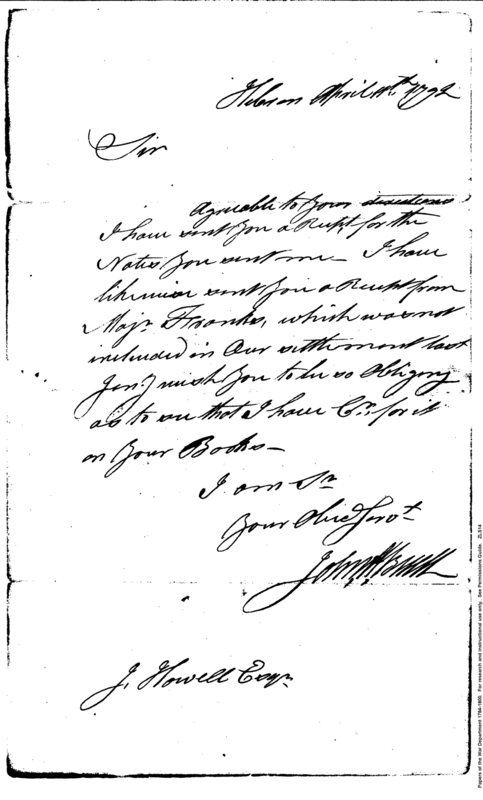 Hebron April 11th. 1792
Sir
Agreeable to Your directions
I have sent You a Recpt. for the
Notes You sent me — I have
likewise sent You a Receipt from
Majr. Franks, which was not
included in Our settlement last
Jany. I wish You to be so Obliging
as to see that I have Cr. for it
on Your Books —
I am Sr.
Your Obed Servt.
John H Buell
J. Howell Esqr.
Papers of the War Department 1784-1800. For research and instructional use only. See Permissions Guide. ZLS14